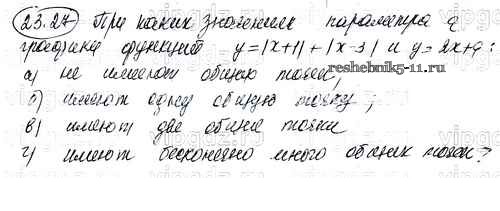 23.27 При каких значениях параметра q
графики функций y=|x+1|+|x-3| и y=2x+q:
а) не имеют общих точек;
reshebnik5-11.ru
б) имеют одну общую точку;
в) имеют две общие точки
г) имеют бесконечно много общих точек?